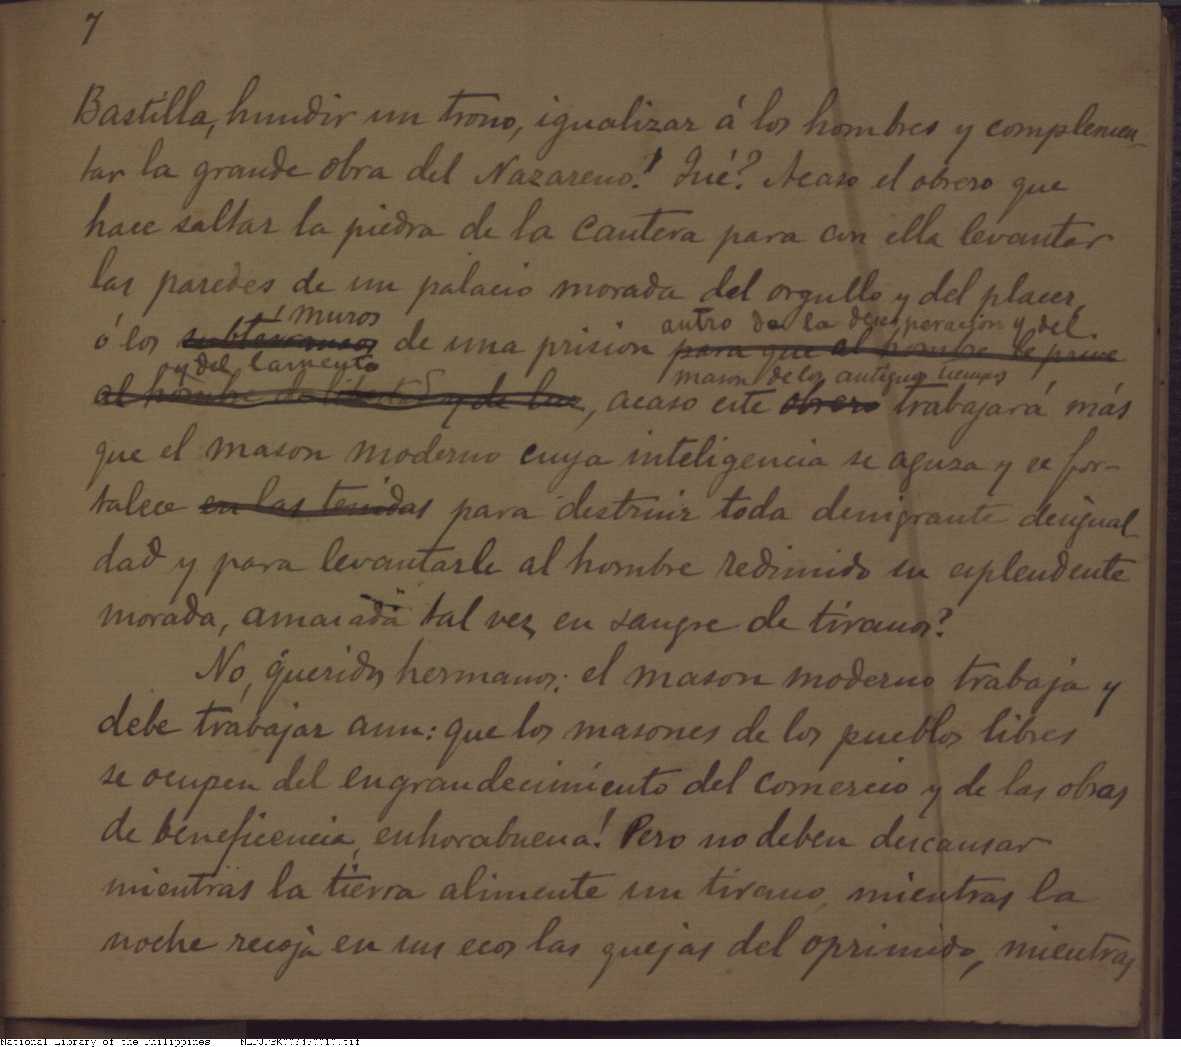 7
Bastilla, hundir un trono, igualizar á los hombres y complemen-
tar la grande obra del Nazareno! Qué? Acaso el obrero que
hace saltar la piedra de la cantera para con ella levantar
las paredes de un palacio morada del orgullo y del placer,
muros antro de la desesperacion y del
ó los subterraneos de una prision para que al hombre le prive
y del lamento mason de los antiguos tiempos
al hombre de libertad y de luz, acaso este obrero trabajará más
que el mason moderno cuya inteligencia se aguza y se for-
talece en las tenidas para destruir toda denigrante desigual-
dad y para levantarle al hombre redimido su esplendente
morada, amasada tal vez en sangre de tiranos?
No, queridos hermanos; el mason moderno trabaja y
debe trabajar aun: que los masones de los pueblos libres
se ocupen del engrandecimiento del comercio y de las obras
de beneficencia, enhorabuena! Pero no deben descansar
mientras la tierra alimente un tirano, mientras la
noche recoja en sus ecos las quejas del oprimido, mientras
National Library of the Philippines